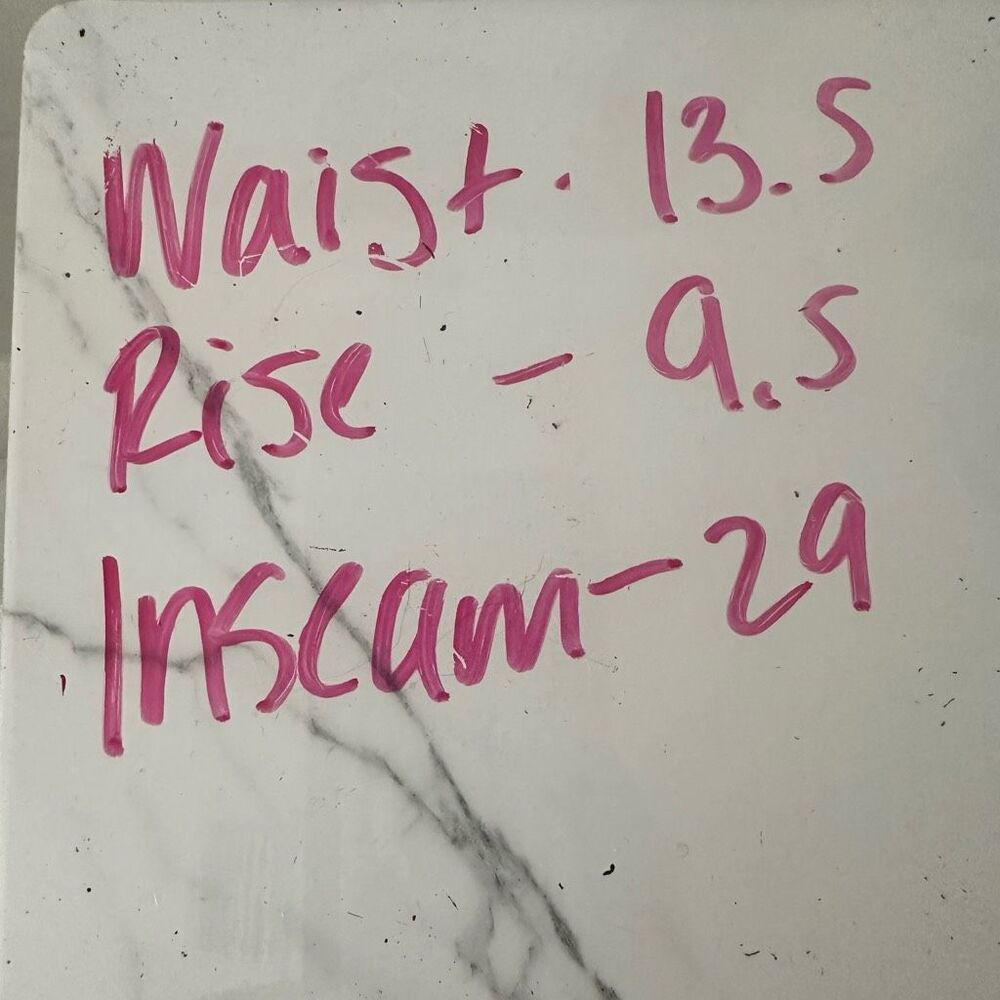 Waist. 13.5
Rise - 9.5
Inseam - 29